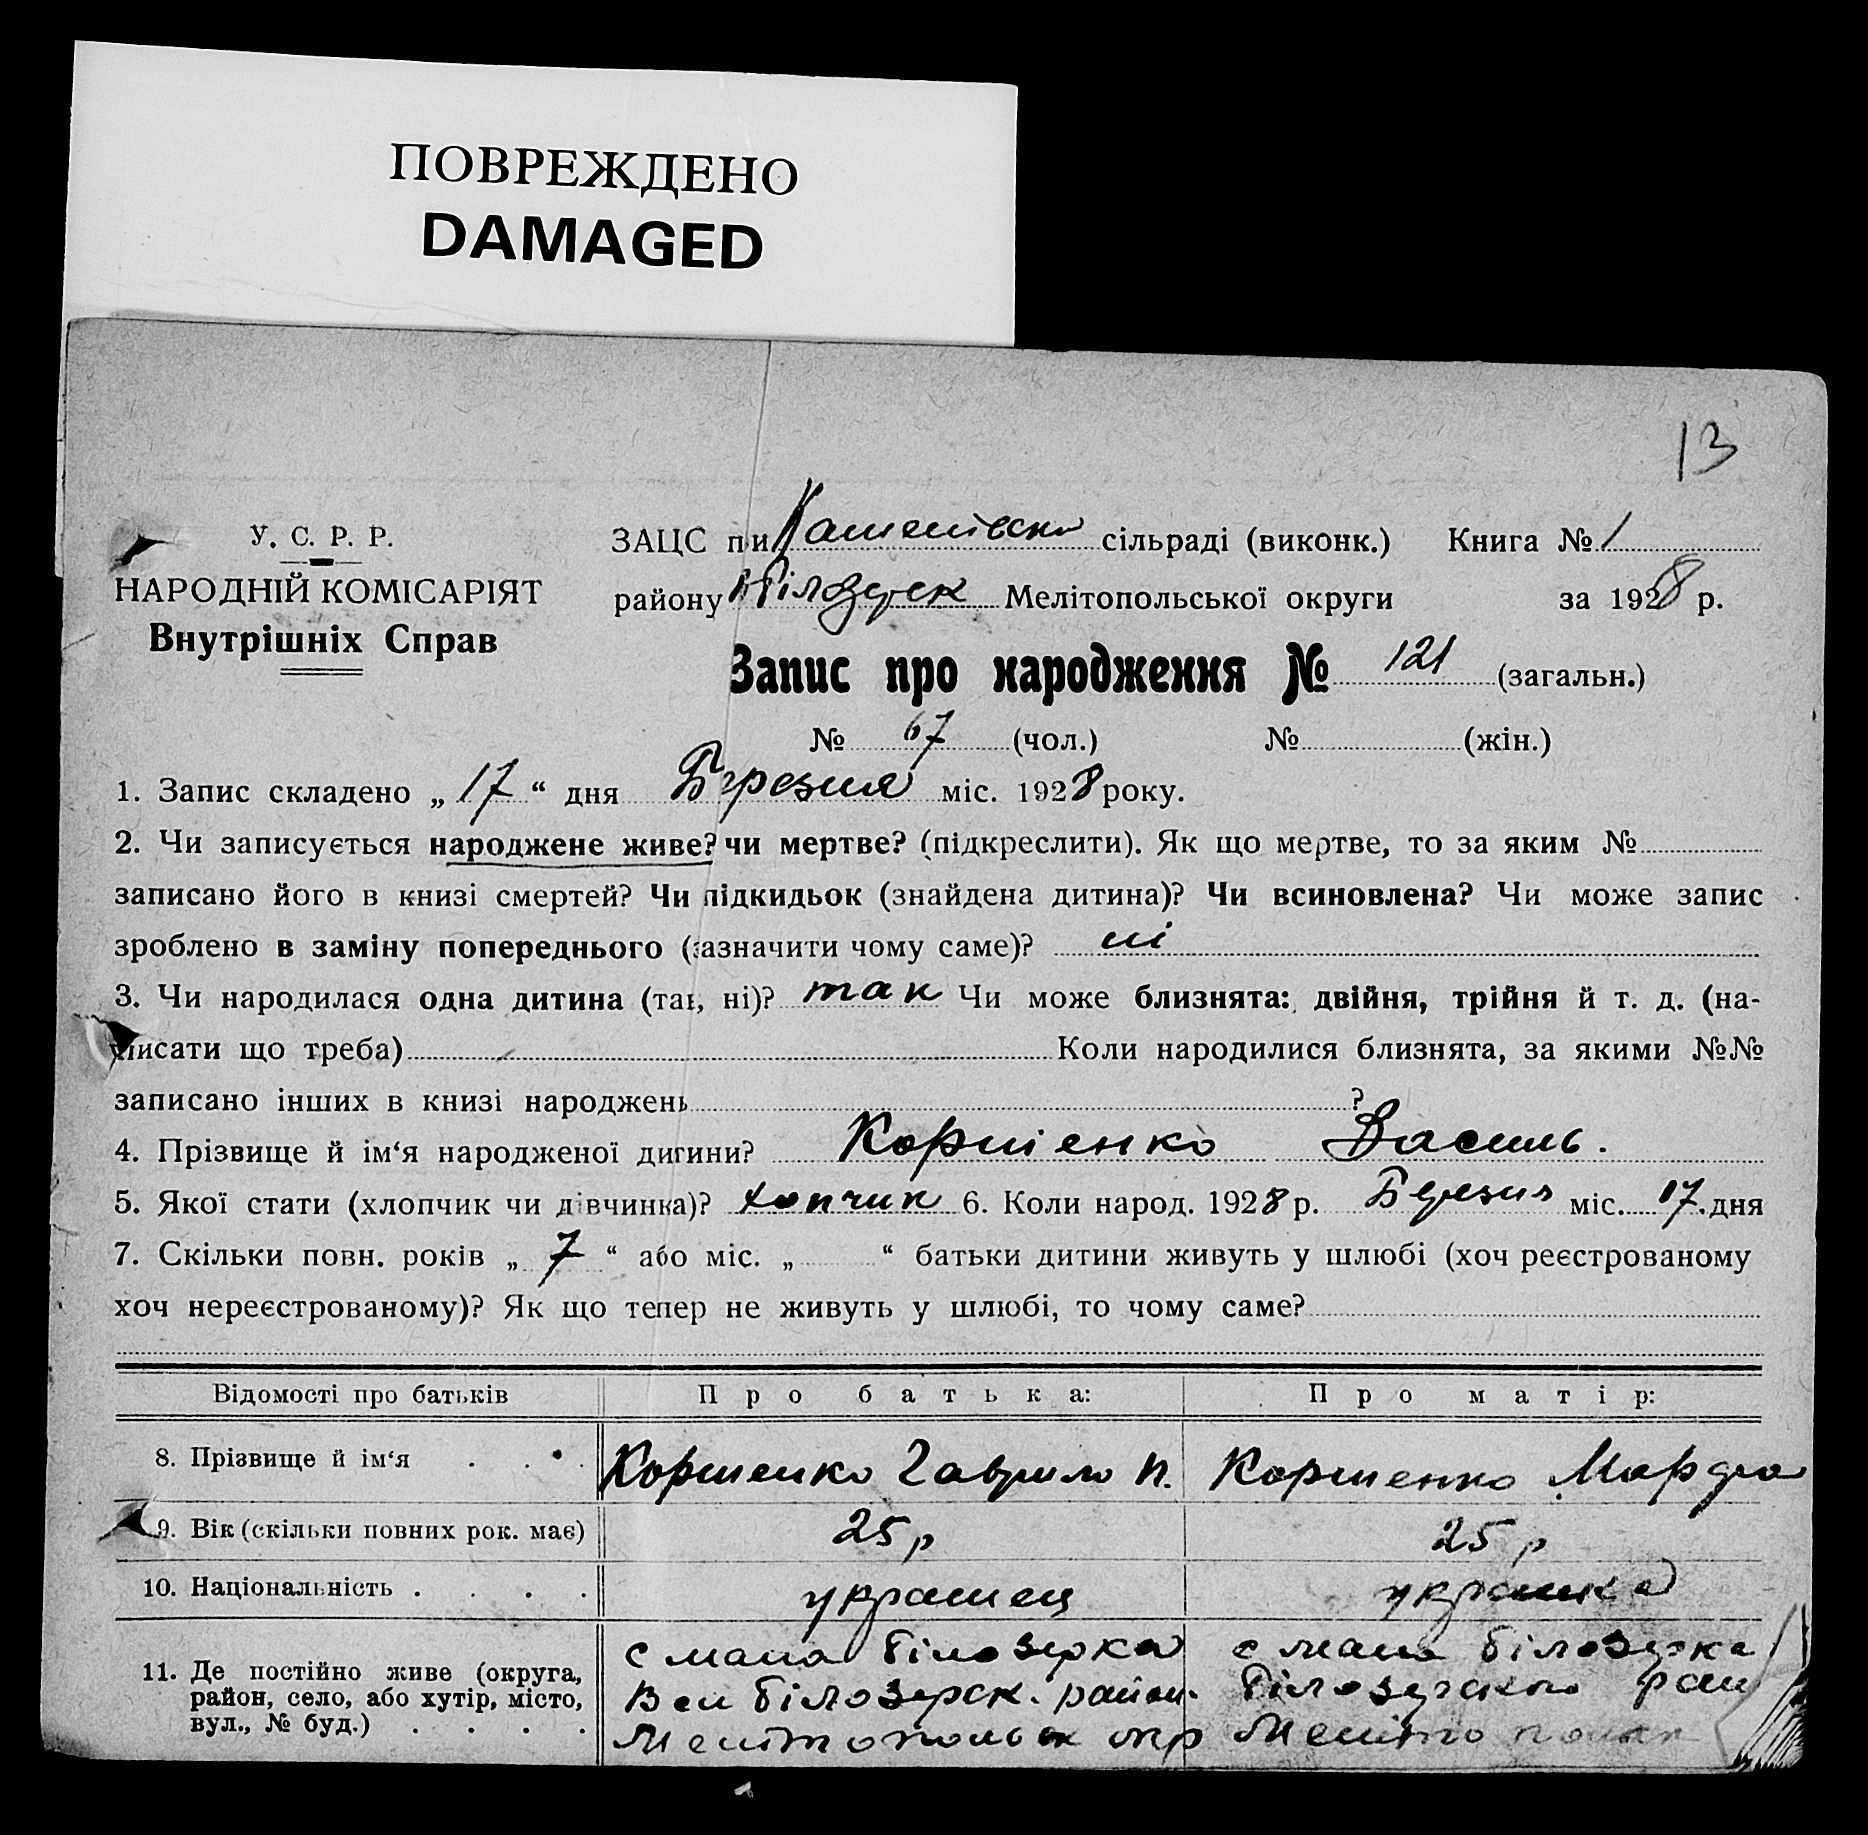 ПОВРЕЖДЕНО
DAMAGED
13
У. С. Р. Р.
НАРОДНІЙ КОМІСАРІЯТ
Внутрішніх Справ
ЗАЦС при сільраді (виконк.) Книга № 1
району Білозерск Мелітопольської округи за 1928 р.
Запис про народження № 121 (загальн.)
№ 67 (чол.) № (жін.)
1. Запис складено „ 17 “ дня Березня міс. 1928 року.
2. Чи записується народжене живе? чи мертве? (підкреслити). Як що мертве, то за яким №
записано його в книзі смертей? Чи підкидьок (знайдена дитина)? Чи всиновлена? Чи може запис
зроблено в заміну попереднього (зазначити чому саме)? ні
3. Чи народилася одна дитина (так, ні)? так Чи може близнята: двійня, трійня й т. д. (на-
писати що треба) Коли народилися близнята, за якими №№
записано інших в книзі народжень ?
4. Прізвище й ім‘я народженої дитини? Коршенко Василь.
5. Якої стати (хлопчик чи дівчинка)? хопчик 6. Коли народ. 1928 р. Березня міс. 17. дня
7. Скільки повн. років „ 7 “ або міс. „ “ батьки дитини живуть у шлюбі (хоч реєстрованому
хоч нереєстрованому)? Як що тепер не живуть у шлюбі, то чому саме?
Відомості про батьків Про батька: Про матір:
8. Прізвище й ім‘я . . . . Коршенко Гаврило П. Коршенко
9. Вік (скільки повних рок. має) 25 р 25 р
10. Національність . . . . украінец украінка
11. Де постійно живе (округа, с мала білозерка с мала білозерка
район, село, або хутір, місто, Вел білозерск. район. білозерского рай
вул., № буд.) . . . . Мелітопольск окр Меліто